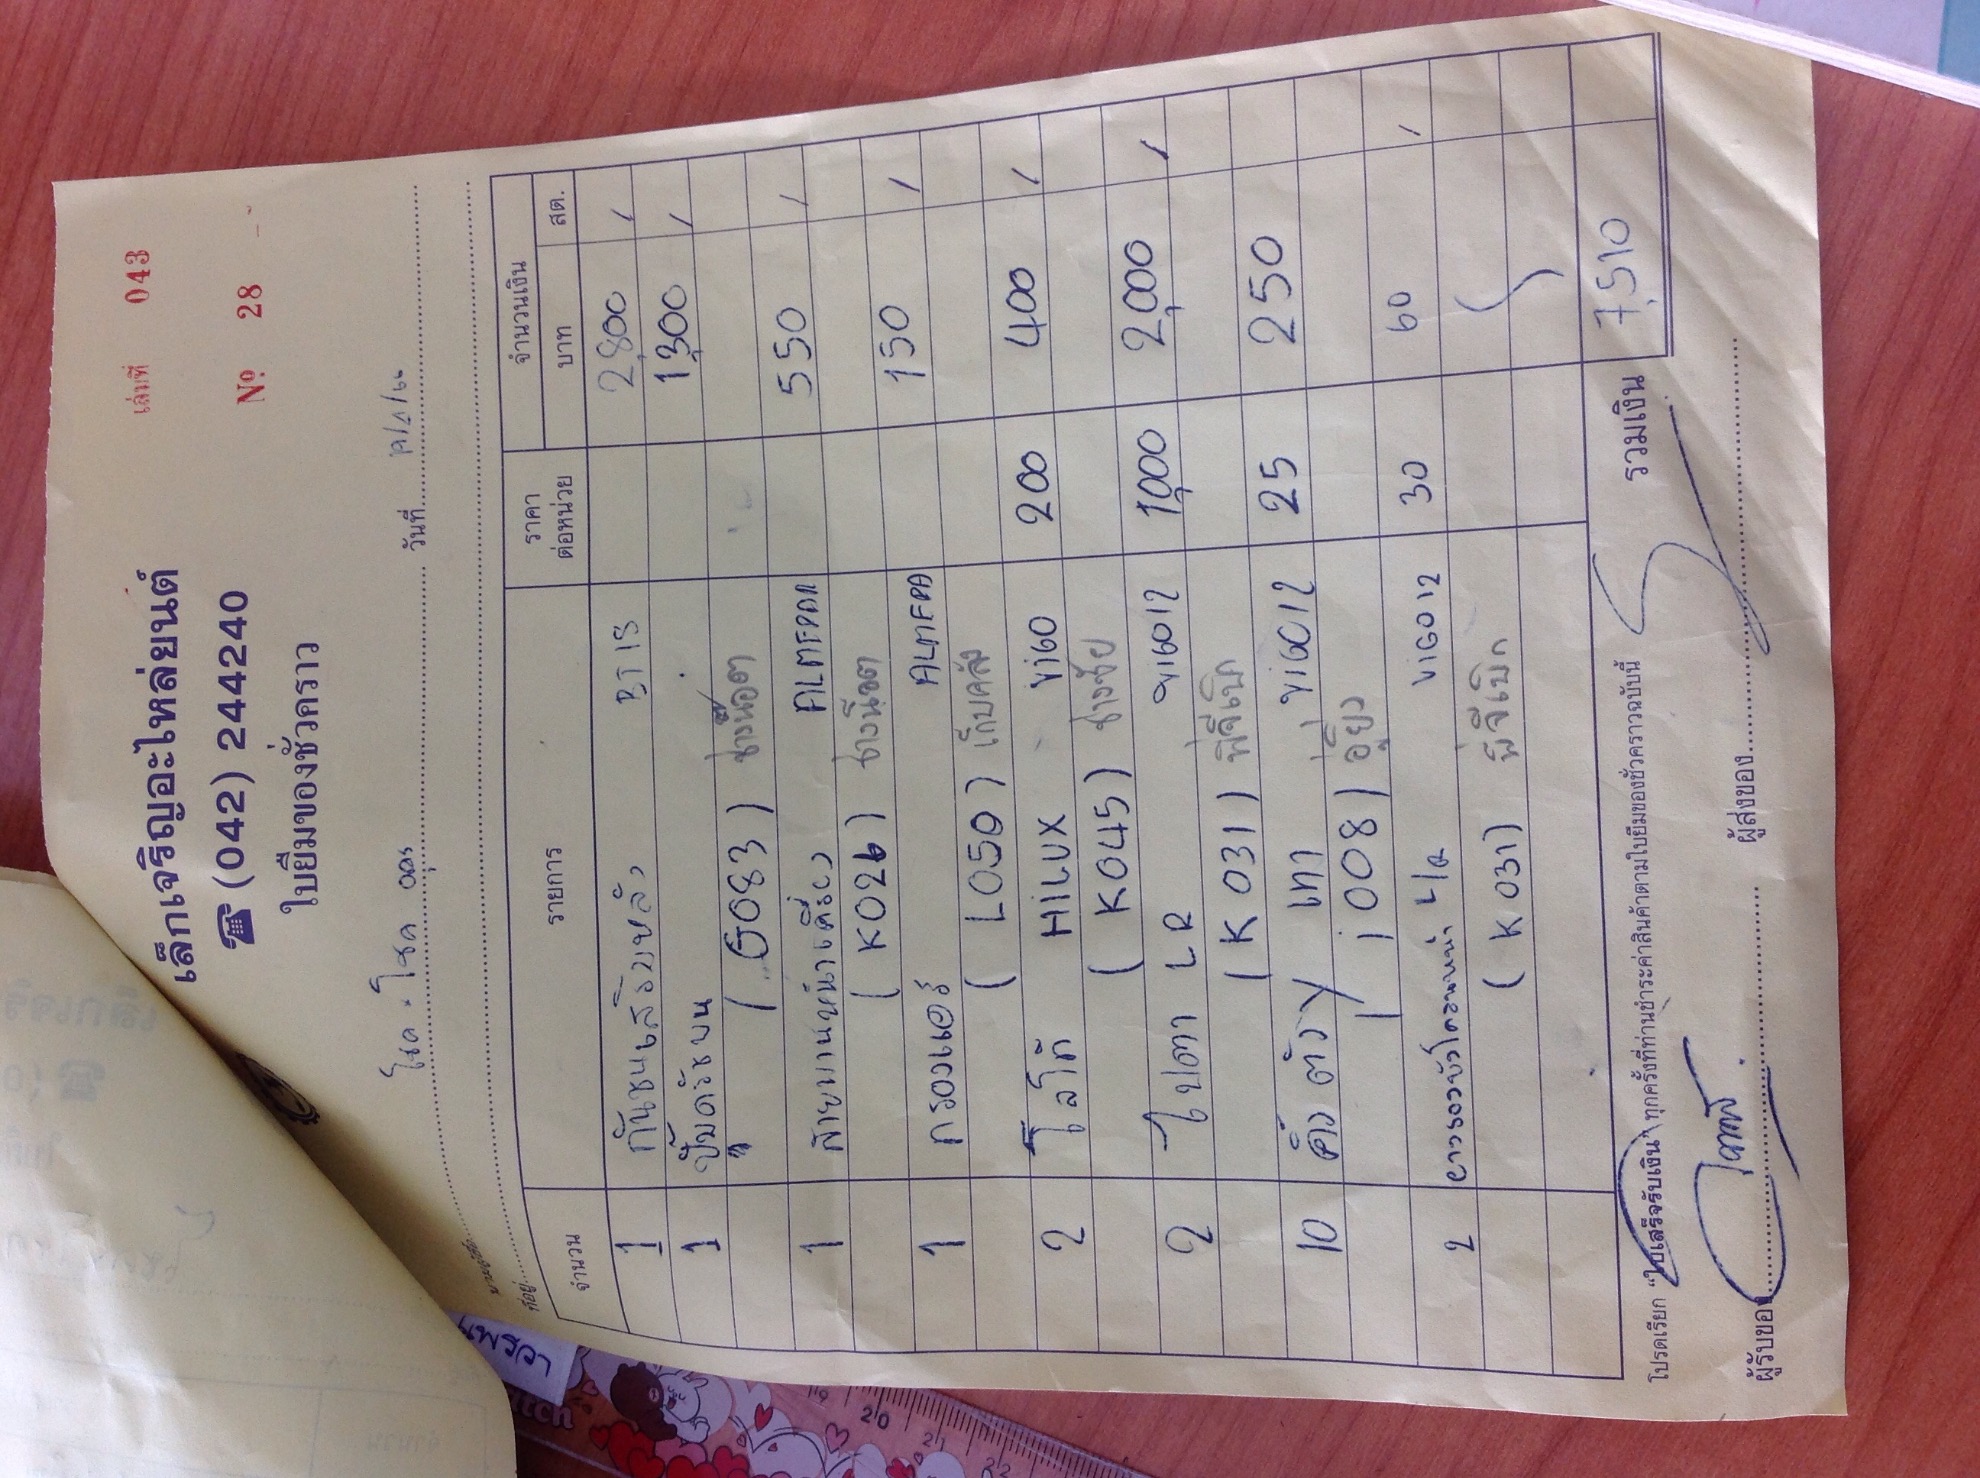 เล่มที่ 043
เล็กเจริญอะไหล่ยนต์
☎ (042) 244240
Nº 28
ใบยืมของชั่วคราว
โชค . โชค อุดร วันที่
ที่อยู่
จำนวน รายการ ราคาต่อหน่วย จำนวนเงิน
บาท สต.
1 กันชนเสริมหลัง 2,800 /
1 ปั๊มครัชบน 1,300 /
( G083 ) ช่างน๊อต
1 สายพานหน้าเครื่อง 550 /
( K026 ) ช่างน๊อต
1 กรองแอร์ 150 /
( L050 ) เก็บคลัง
2 โลโก้ HILUX VIGO 200 400 /
( K045 ) ช่างชัย
2 ไฟตา LR VIGO12 1,000 2,000 /
( K031 ) พี่จีเบิก
10 คิ้ว ตัว Y เทา VIGO12 25 250
( i008 ) อู๋ยิ่ง
2 ยางรองหัวโครงหน้า L/R VIGO12 30 60 /
( K031 ) พี่จีเบิก
รวมเงิน 7,510
โปรดเรียก "ใบเสร็จรับเงิน" ทุกครั้งที่ท่านชำระค่าสินค้าตามใบยืมของชั่วคราวฉบับนี้
ผู้รับของ ผู้ส่งของ
แพรวา
19 20 21 22